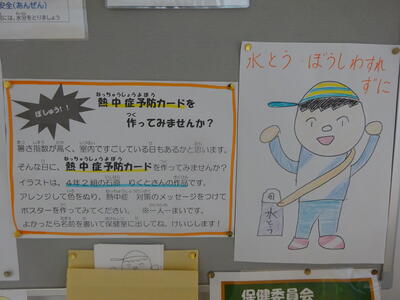 安全(あんぜん)
には、水分をとりましょう
ぼしゅう!!
熱中症予防カードを
ねっちゅうしょうよぼう
作ってみませんか?
つく
暑さ指数が高く、室内ですごしている日もあるかと思います。
そんな日に、熱中症予防カードを作ってみませんか?
ねっちゅうしょうよぼう
イラストは、4年2組の石原 りくとさんの作品です。
アレンジして色をぬり、熱中症 対策のメッセージをつけて
ポスターを作ってみてください。 ※一人一まいです。
よかったら名前を書いて保健室に出してね。けいじします!
水とう・ぼうしわすれ
ずに
水とう
保健委員会